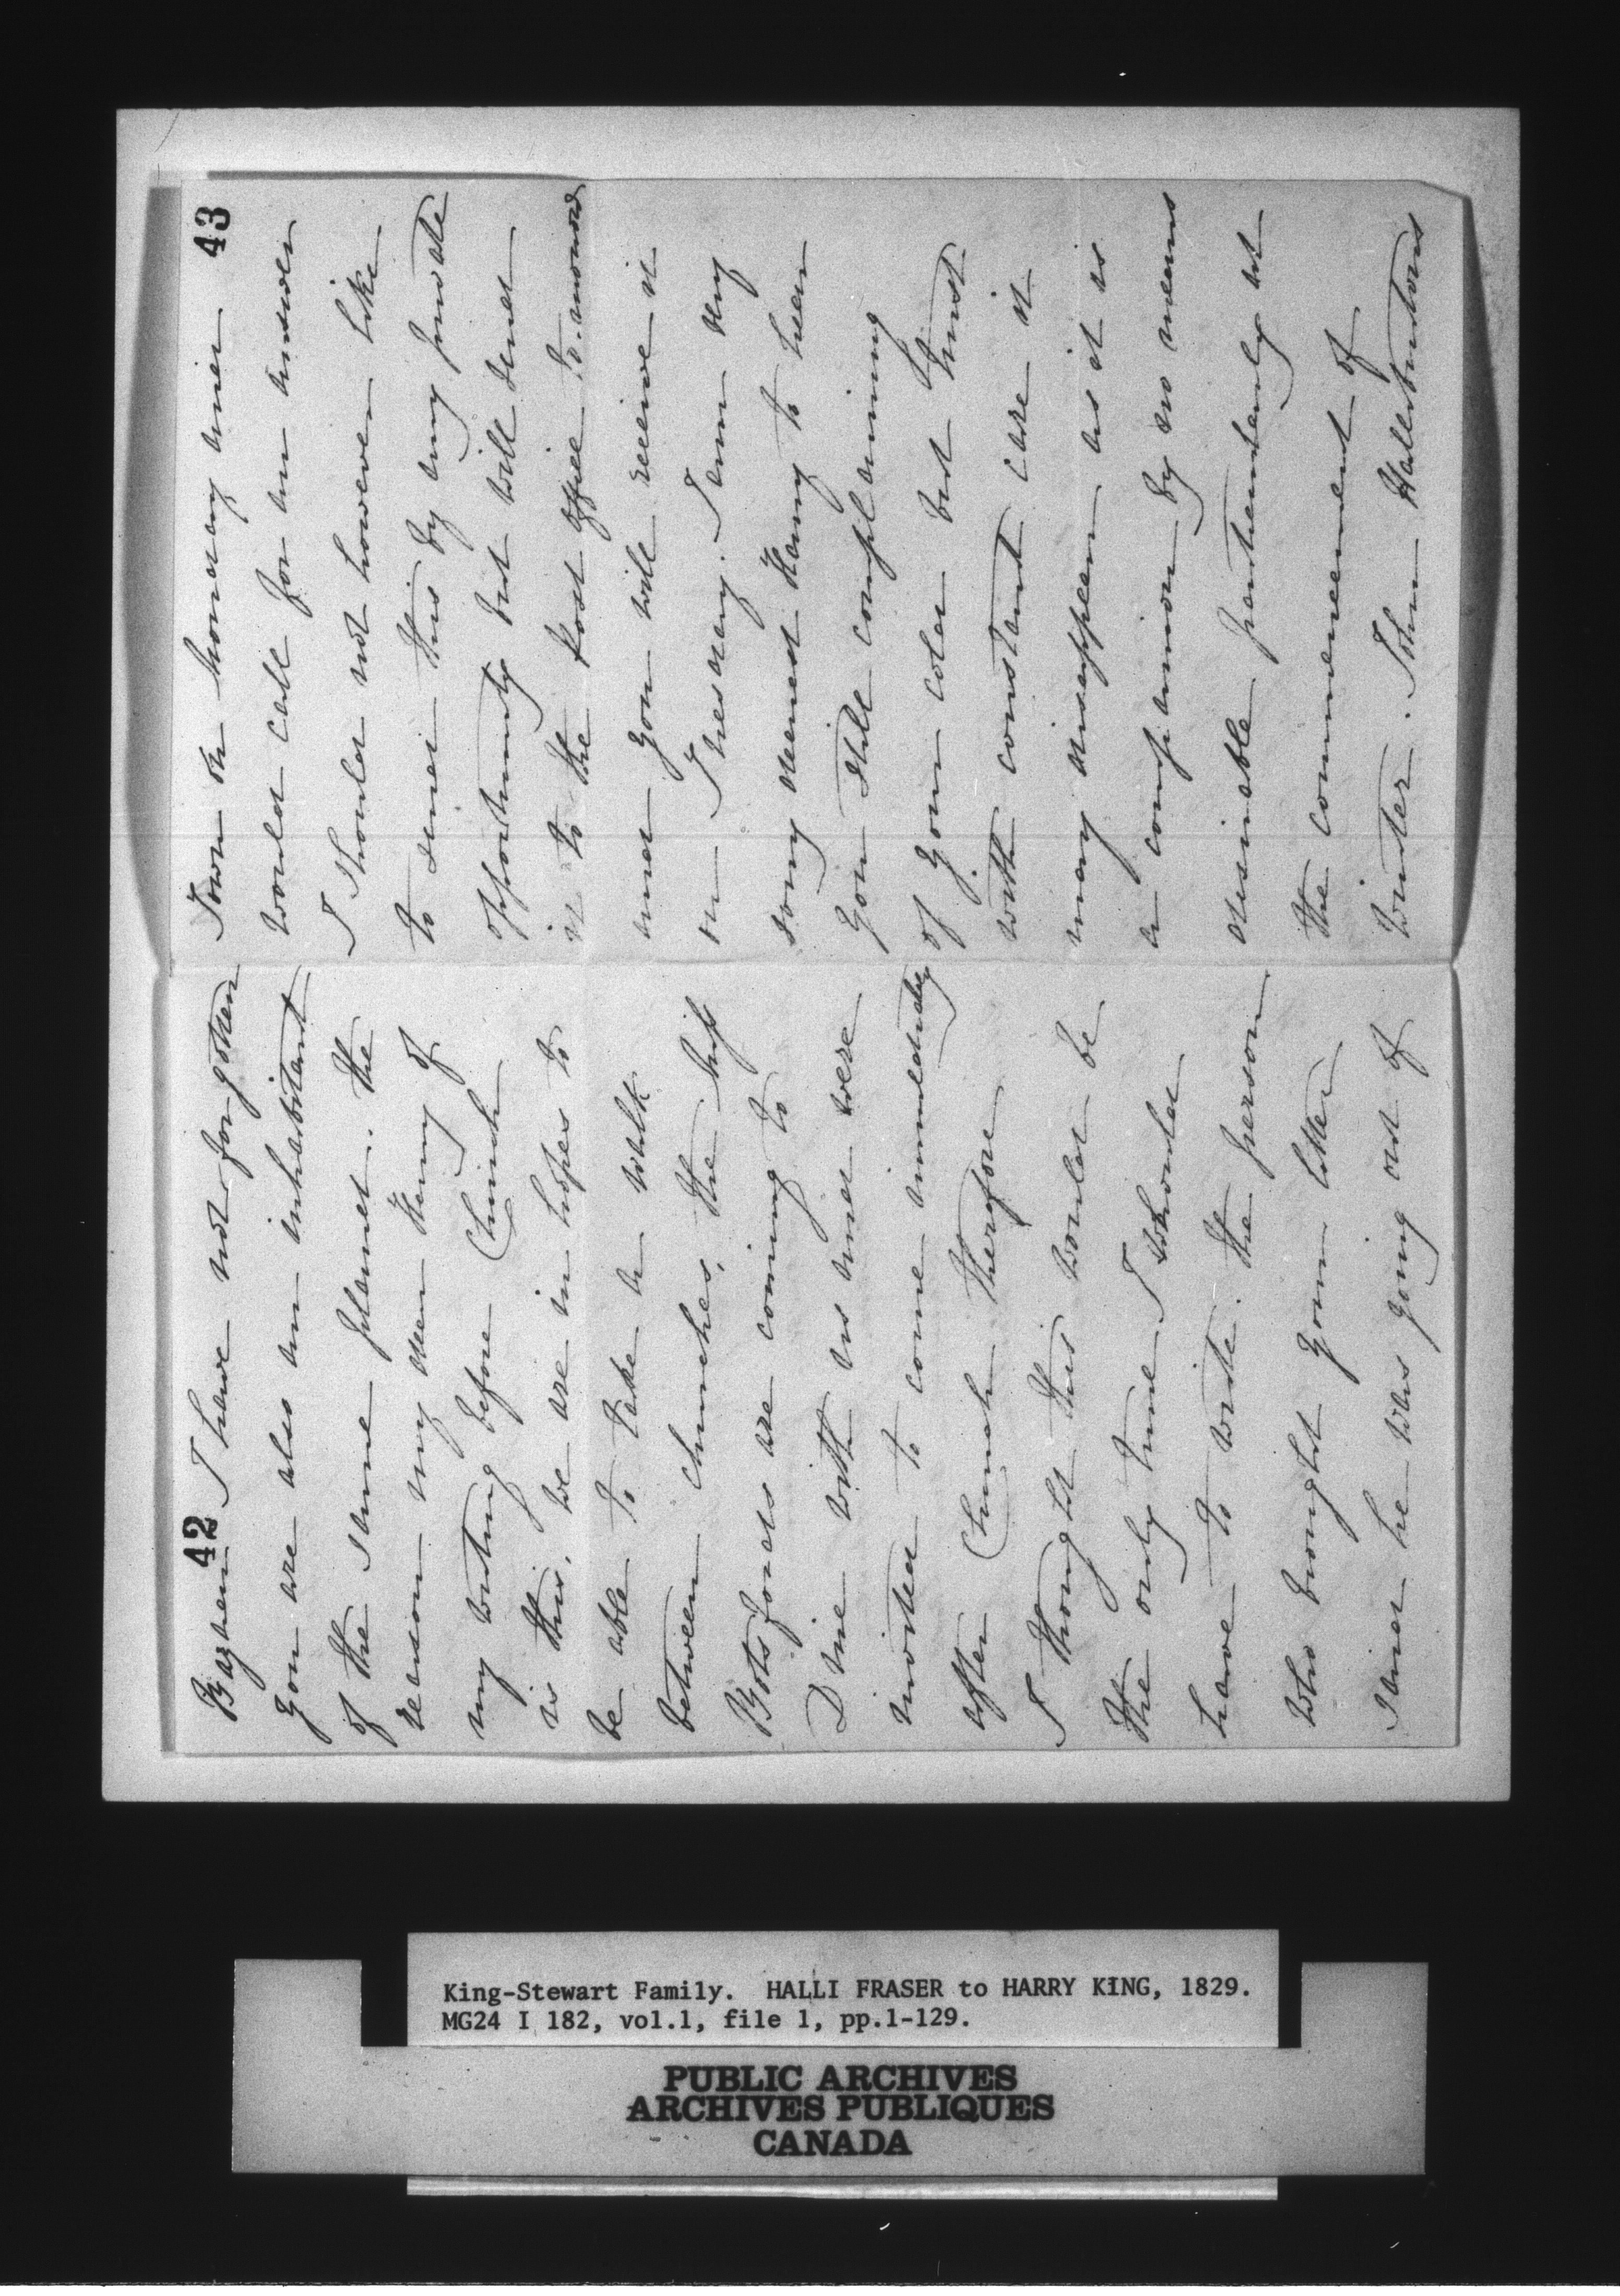 42
Bazaar I have not forgotten
you are also an inhabitant
of the same planet. the
reason my dear Harry of
my writing before Church
is this, we are in hopes to
be able to take a walk
between churches, the Miss
Botsfords are coming to
Dine with us and were
invited to come immediately
after Church therefore
I thought this would be
the only time I should
have to write. the person
who brought your letter
said he was going out of
43
Town on monday and
would call for an answer
I should not however like
to send this by any private
opportunity but will send
it to the post office to-morrow
and you will receive it
on Tuesday. I am very
sorry dearest Harry to hear
you still complaining
of your cold but trust
with constant care it
may disappear as it is
a companion by no means
desirable particularly at
the commencement of
winter. John Halliburtons
King-Stewart Family. HALLI FRASER to HARRY KING, 1829.
MG24 I 182, vol.1, file 1, pp.1-129.
PUBLIC ARCHIVES
ARCHIVES PUBLIQUES
CANADA